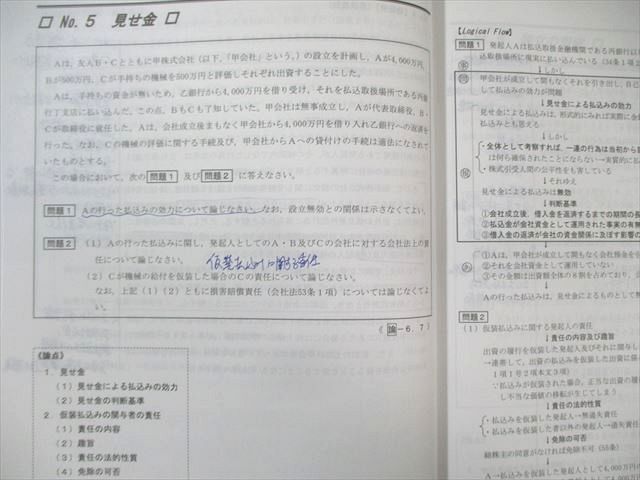 □ No. 5 見せ金 □
Aは，友人B・Cとともに甲株式会社（以下，「甲会社」という。）の設立を計画し，Aが4,000万円，
Bが500万円，Cが手持ちの機械を500万円と評価しそれぞれ出資することにした。
Aは，手持ちの資金が無いため，乙銀行から4,000万円を借り受け，それを払込取扱場所である丙銀
行丁支店に払い込んだ。この点，BもCも了知していた。甲会社は無事成立し，Aが代表取締役，B・
Cが取締役に就任した。Aは，会社成立後まもなく甲会社から4,000万円を借り入れ乙銀行への返済を
行った。なお，Cの機械の評価に関する手続及び，甲会社からAへの貸付けの手続は適法になされて
いたものとする。
この場合において，次の 問題1 及び 問題2 に答えなさい。
問題1 Aの行った払込みの効力について論じなさい。なお，設立無効との関係は示さなくてよい。
問題2 （1）Aの行った払込みに関し，発起人としてのA・B及びCの会社に対する会社法上の責
任について論じなさい。
仮装払込みに関する責任
（2）Cが機械の給付を仮装した場合のCの責任について論じなさい。
なお，上記（1）（2）ともに損害賠償責任（会社法53条1項）については論じなくてよ
い。
（論－6，7）
《論点》
1．見せ金
（1）見せ金による払込みの効力
（2）見せ金の判断基準
2．仮装払込みの関与者の責任
（1）責任の内容
（2）趣旨
（3）責任の法的性質
（4）免除の可否
【Logical Flow】
問題1 発起人Aは払込取扱金融機関である丙銀行
込取扱場所に現実に払い込んでいる（34条1項
↓しかし
甲会社が成立して間もなくそれを引き出し，自己
して払込みの効力が問題
↓見せ金による払込みの効力
見せ金による払込みは，形式的にみれば実際に金
払込みとも思える
↓しかし
・全体として考察すれば，一連の行為は当初から
は何ら確保されたことにならない→実質的に払
・株式引受人間の公平性をも害している
↓それゆえ
見せ金による払込みは無効
↓判断基準
①会社成立後，借入金を返済するまでの期間の
②払込金が会社資金として運用された事実の有無
③借入金の返済が会社の資金関係に及ぼす影響の
①Aは，甲会社が成立して間もなく会社預金を
②それを会社資金として運用していない
③その金額は出資額全体の8割を占めており，
Aの行った払込みは，見せ金によるものとして
問題2
（1）仮装払込みに関する発起人の責任
↓責任の内容及び趣旨
出資の履行を仮装した発起人及びそれに関与し
→連帯して，出資の払込みを仮装した出資に係
1項1号2項本文3項）
∵払込みが仮装された場合，正当な出資の履
し不当な価値の移転が生じてしまう
↓責任の法的性質
・払込みを仮装した発起人→無過失責任
・払込みを仮装した者以外の発起人→過失責任
↓免除の可否
総株主の同意がなければ免除不可（55条）